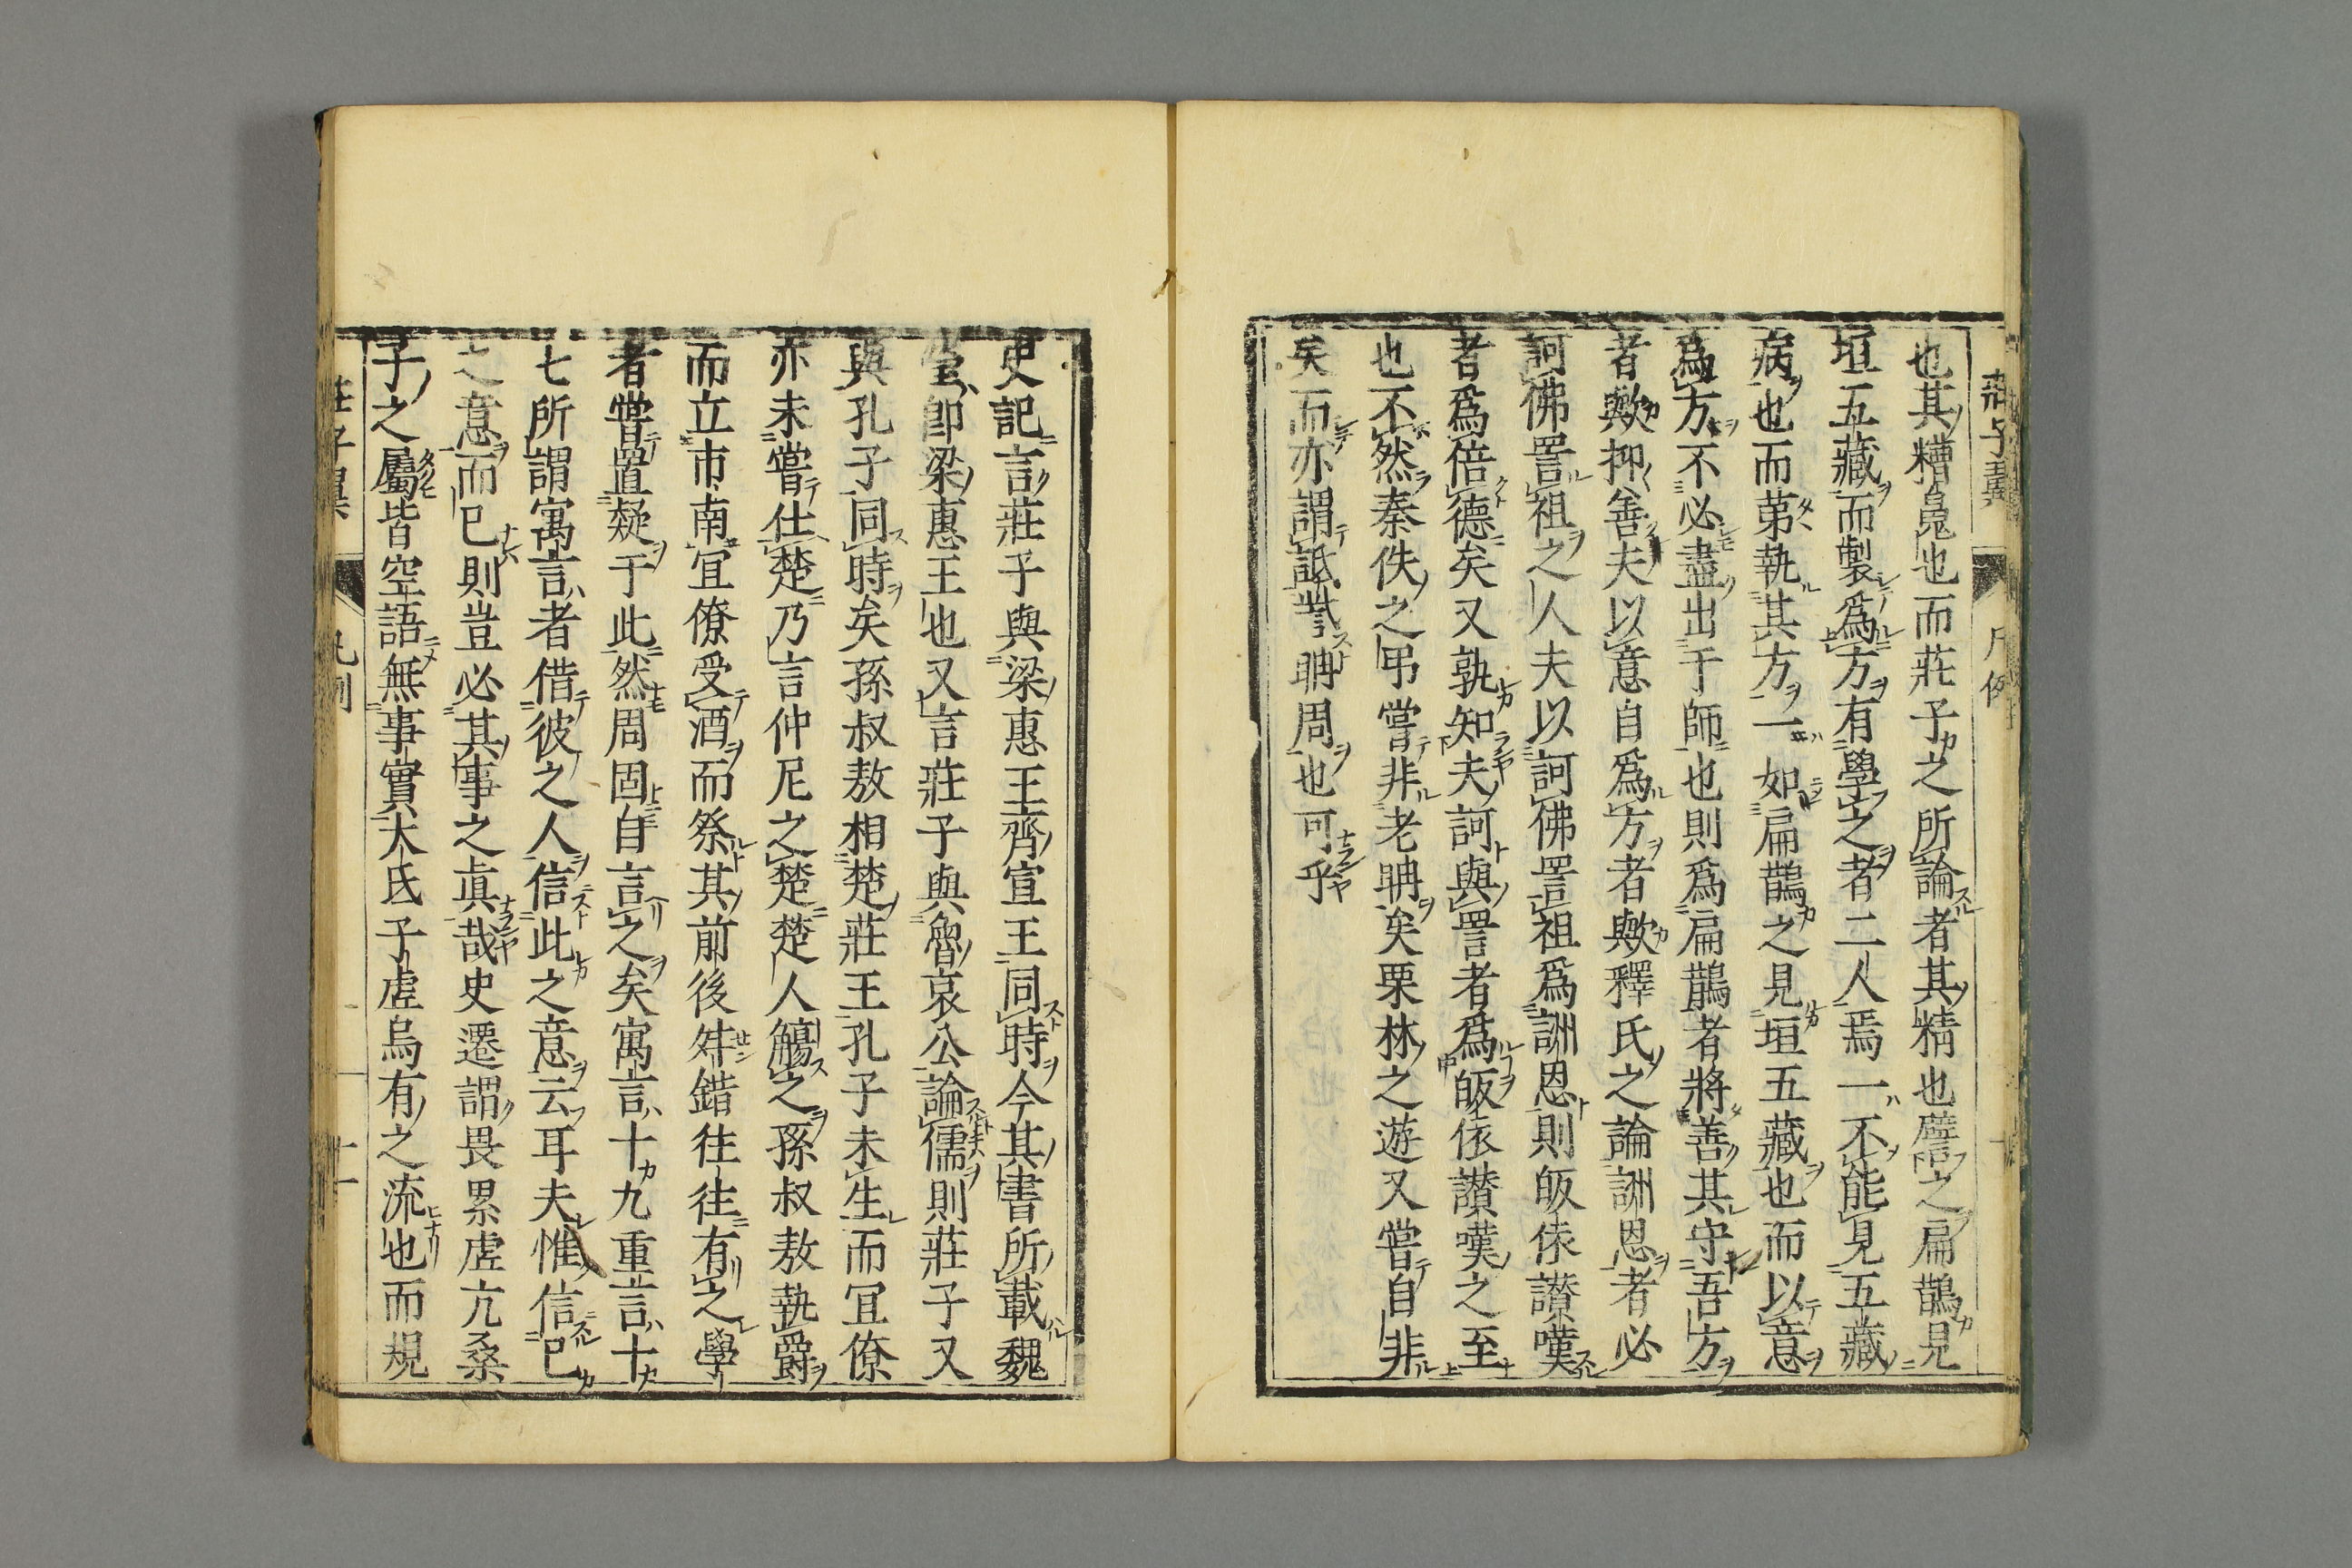 也其糟魄也而莊子之所論者其精也譬之扁鵲見
垣五藏而製爲方有學之者二人焉一不能見五藏
病也而苐執其方一如扁鵲之見垣五藏也而以意
爲方不必盡出于師也則爲扁鵲者將善其守吾方
者歟抑善夫以意自爲方者歟釋氏之論詶恩者必
訶佛詈祖之人夫以訶佛詈祖爲詶恩則皈依讃嘆
者爲倍德矣又孰知夫訶與詈者爲皈依讃嘆之至
也不然秦佚之弔嘗非老聃矣栗林之遊又嘗自非
矣而亦謂詆訾聃周也可乎
史記言莊子與梁惠王齊宣王同時今其書所載魏
瑩卽梁惠王也又言莊子與魯哀公論儒則莊子又
與孔子同時矣孫叔敖相楚莊王孔子未生而冝僚
亦未嘗仕楚乃言仲尼之楚楚人觴之孫叔敖執爵
而立市南冝僚受酒而祭其前後舛錯往往有之學
者嘗置疑于此然周固自言之矣寓言十九重言十
七所謂寓言者借彼之人信此之意云耳夫惟信已
之意而已則豈必其事之眞哉史遷謂畏累虛亢桑
子之屬皆空語無事實大氐子虛烏有之流也而規
莊子翼 凡例